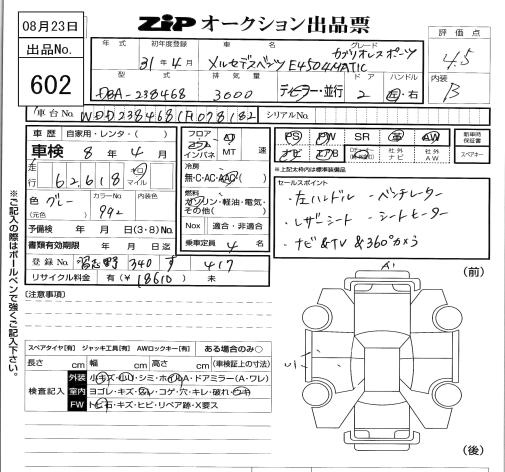 08月23日
出品No.
602
ZiP オークション出品票
評価点
4.5
内装
B
年式 初年度登録 車名 グレード
31年4月 メルセデスベンツ E450 4MATIC カブリオレスポーツ
型式 排気量 ドア ハンドル
DBA-238468 3000 ディーラー・並行 2 左・右
車台No. WDD2384681F078182 シリアルNo.
車歴 自家用・レンタ・( )
車検 8年4月
走行 62,618 キロ マイル
色 グレー カラーNo. 992
(元色)
予備検 年 月 日 (3・8)No.
書類有効期限 年 月 日迄
登録No. 習志野 340 す 417
リサイクル料金 有(¥18610) 未
フロア コラム インパネ AT MT 速
冷房
無・C・AC・AAC
燃料
ガソリン・軽油・電気・その他( )
Nox 適合・非適合
乗車定員 4名
PS PW SR 革 AW
ナビ エアB 社外ナビ 社外AW
新車時保証書
スペアキー
*上記太枠内は標準装備品
セールスポイント
・左ハンドル ・ベンチレーター
・レザーシート ・シートヒーター
・ナビ&TV & 360°カメラ
※ご記入の際はボールペンで強くご記入下さい。
〔注意事項〕
(前)
スペアタイヤ[有] ジャッキ工具[有] AWロックキー[有] ある場合のみ○
長さ cm 幅 cm 高さ cm (車検証上の寸法)
検査記入
外装 小キズ・小U・シミ・ホイルA・ドアミラー(A・ワレ)
室内 ヨゴレ・キズ・スレ・コゲ・穴・キレ・破れ・ウキ
FW トビ石・キズ・ヒビ・リペア跡・X要ス
(後)